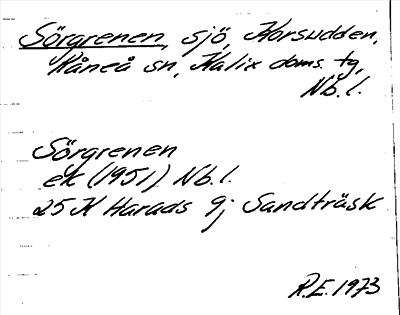 Sörgrenen, sjö, Korsudden,
Råneå sn, Kalix doms. tg,
Nb.l.
Sörgrenen
ek (1951) Nb.l.
25K Harads 9j Sandträsk
R.E. 1973